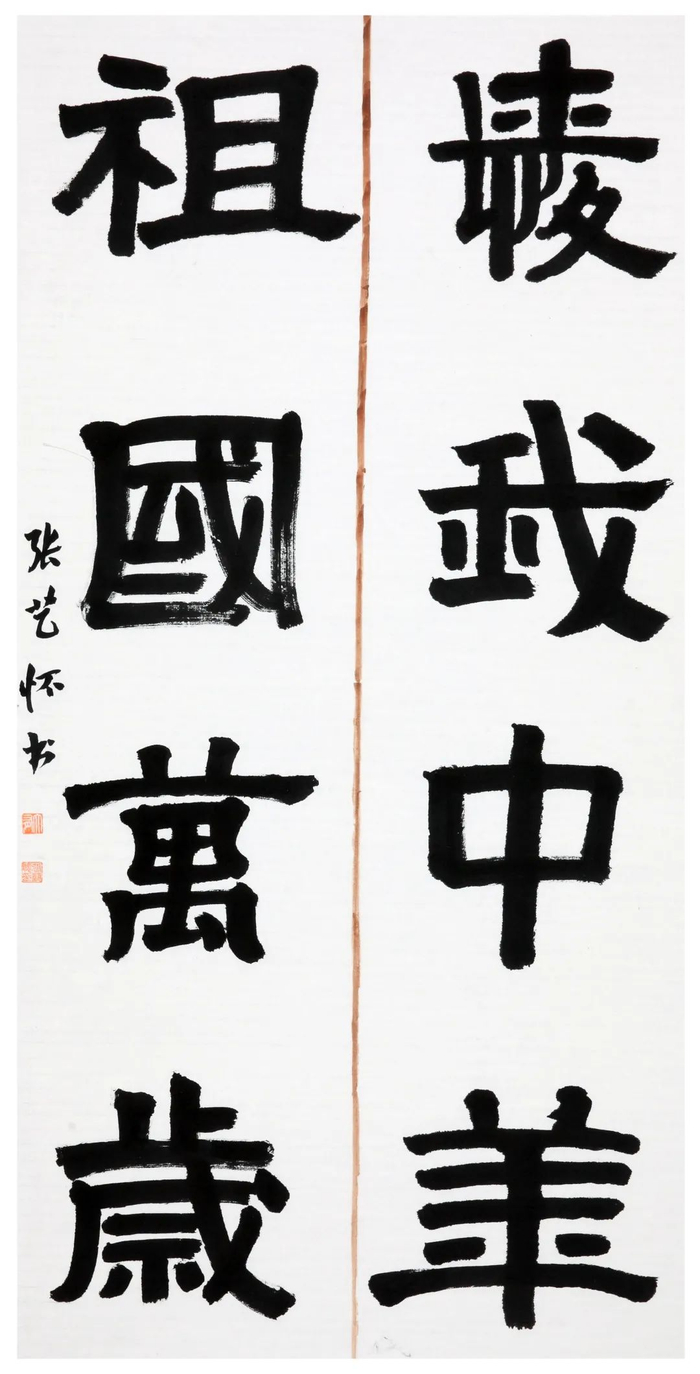 愛我中華
祖國萬歲
张艺怀书